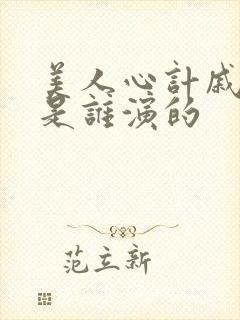 美人心計戚
是誰演的
范立新